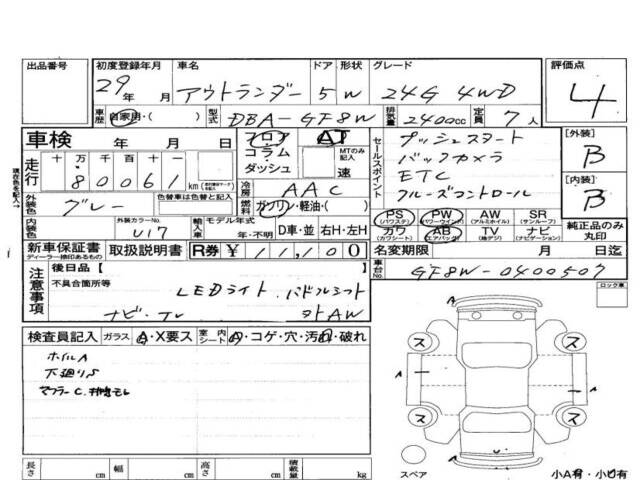 出品番号 初度登録年月 車名 ドア 形状 グレード 評価点
29年 月 アウトランダー 5 W 24G 4WD 4
車歴 自家用・( ) 型式 DBA-GF8W 排気量 2400cc 定員 7人
車検 年 月 日 フロア AT セールスポイント プッシュスタート [外装]
走行 十 万 千 百 十 一 コラム・ダッシュ MTのみ記入 速 バックカメラ B
80061 km 冷房 AAC ETC [内装]
外装色 グレー 色替車は色替と記入 燃料 ガソリン・軽油・( ) クルーズコントロール B
内装色 外装カラーNo. U17 輸入車 モデル年式 年・不明 D車・並 右H・左H
PS (パワステ) PW (パワーウインド) AW (アルミホイル) SR (サンルーフ) 純正品のみ丸印
カワ (カワシート) AB (エアバッグ) TV (地デジ) ナビ (ナビゲーション)
現在色を記入→
新車保証書 ディーラー捺印あるもの 取扱説明書 R券 ¥11,100 名変期限 月 日迄
注意事項 後日品【 】 車台No. GF8W-0400507
不具合箇所等 LEDライト パドルシフト ロック車
ナビ・TV 社外AW
検査員記入 ガラス A・X要ス 室内シート A・コゲ・穴・汚れ・破れ
ホイルA
下廻りS
マフラーC
ス ス
A A
ス ス
スペア A 小A有・小U有
長さ cm 幅 cm 高さ cm 積載量 kg